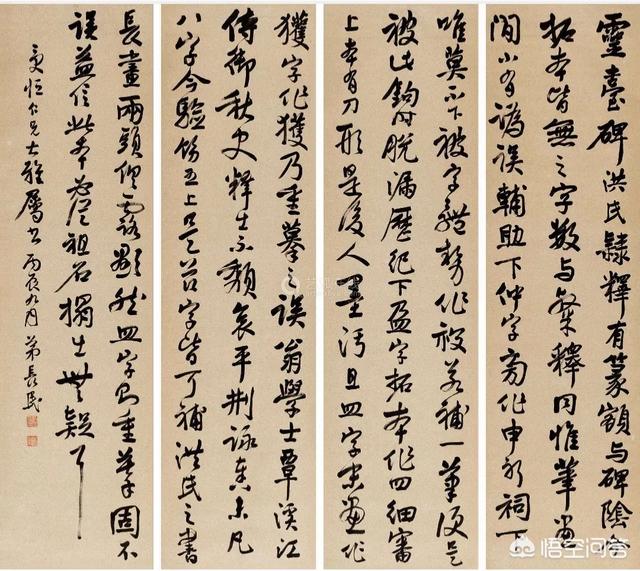 靈臺碑洪氏隸釋有篆額與碑陰今
拓本皆無之字數與隸釋同惟筆畫
間小有譌誤輔助下仲字商作申於祠下
唯莫不下被字體勢作祋若補一筆便是
被此鉤時脫漏歷紀下盈字拓本作四細審
上本有刀形是後人墨污且皿字末畫作
獲字作獲乃重摹之誤翁學士覃溪江
侍御秋史釋出不頹哀平荆詠未凡
八字今驗飭五上是苔字皆可補洪氏之書
長畫兩頭俱露然皿字則重筆固不
誤益信此本為從祖石搨出無疑耳
更恒仁兄大雅屬書 丙辰九月 弟長民
悟空问答